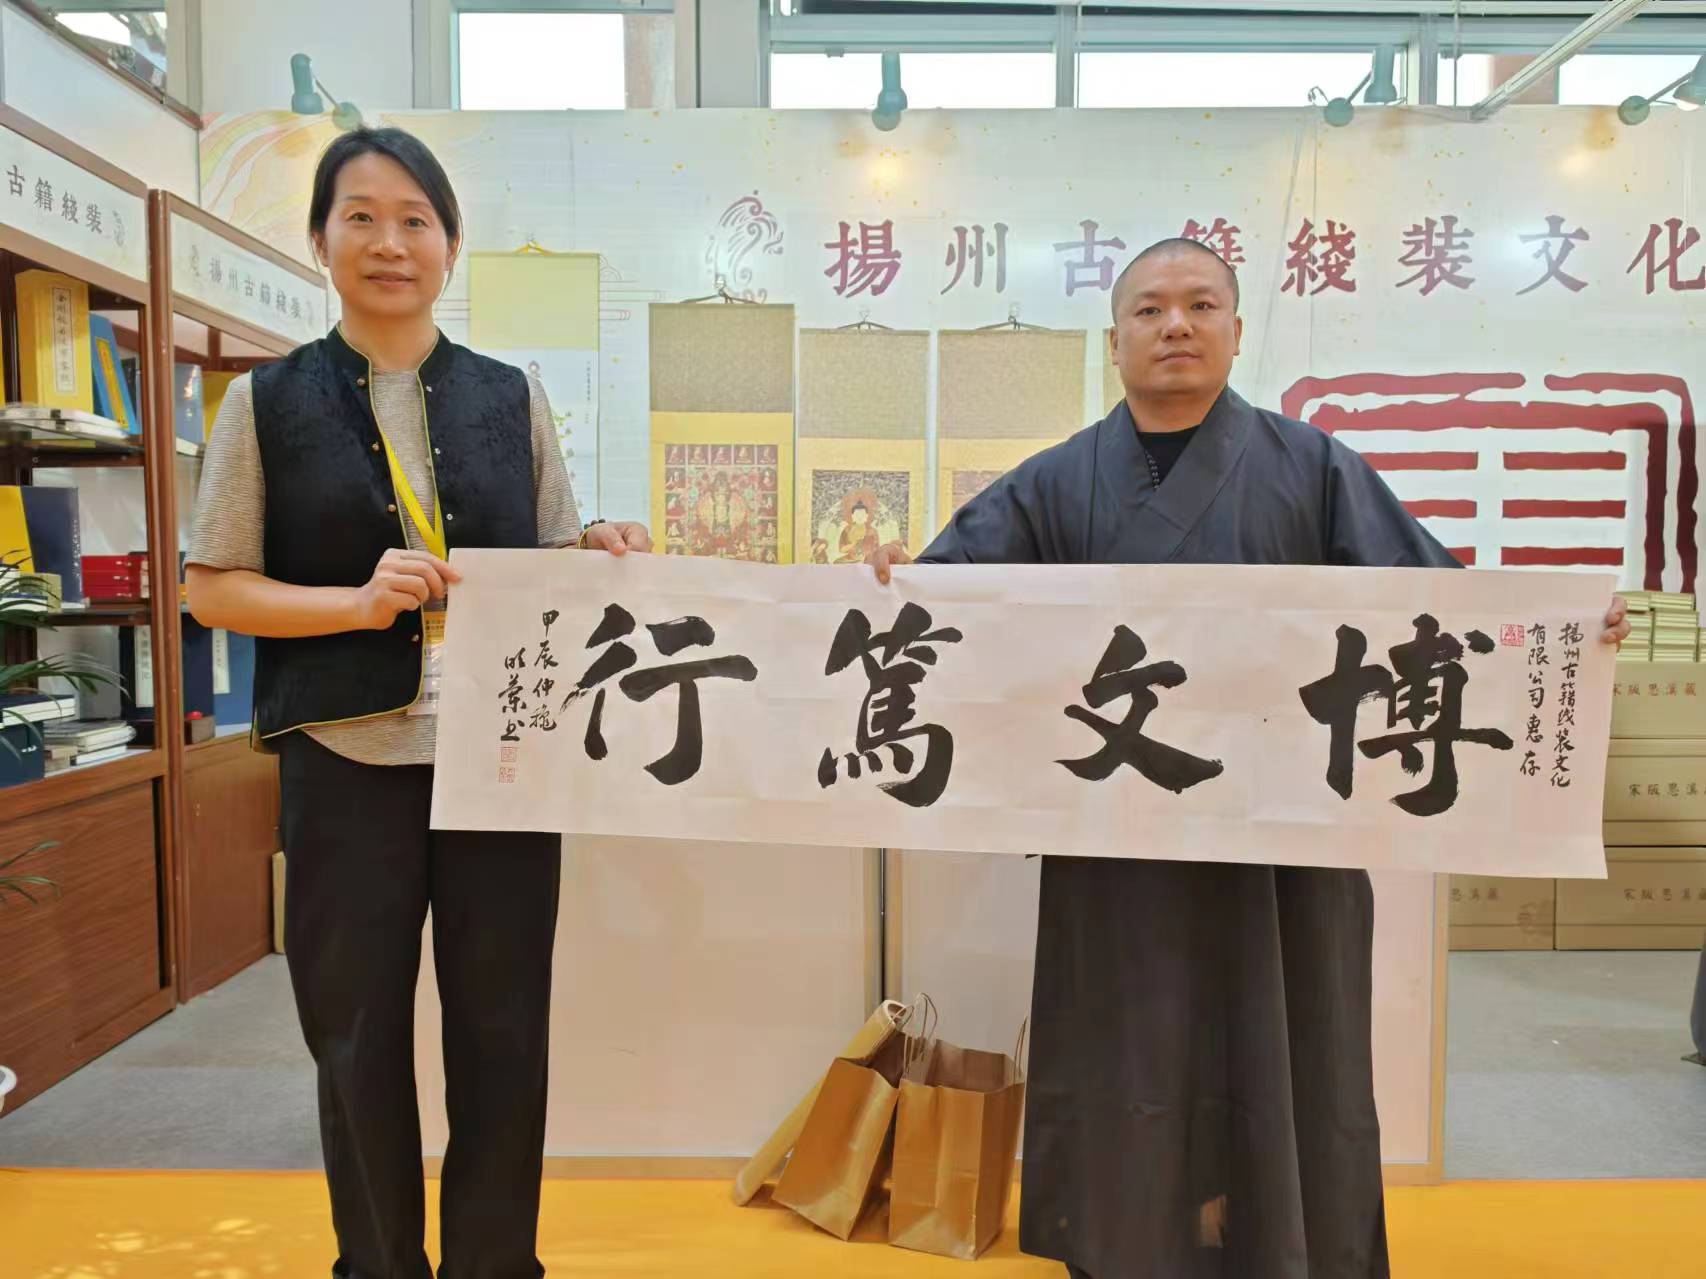 揚州古籍綫裝文化
古籍綫裝
揚州古籍綫裝
博文篤行
揚州古籍线装文化
有限公司惠存
甲辰仲穐
宋版思溪藏
宋版思溪
思溪藏
宋版思溪藏